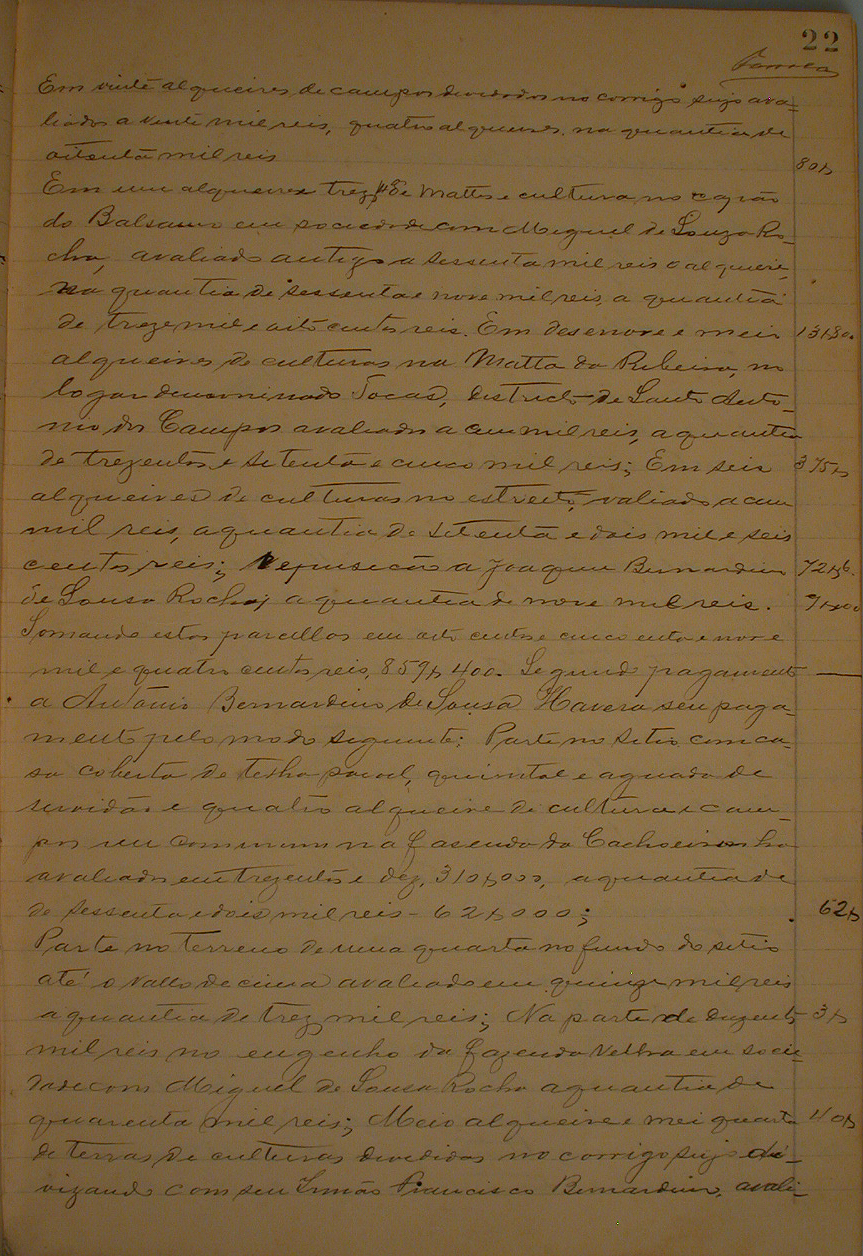 22
Em vinte alqueires de campos devededos no corrigo sujo ava-
liados a vinte mil reis, quatro alqueires, na quantia de
oitenta mil reis 80$
Em um alqueire e trez 48ᵒˢ de Mattos e cultura no capão
do Balsamo em sociedade com Miguel de Souza Ro-
cha, avaliado antigo a sessenta mil reis o alqueire,
na quantia de sessenta e nove mil reis, a quantia
de treze mil e oito centos reis. Em desenove e meio 13$80.
alqueires de culturas na Matta do Ribeiro, no
logar denominado Tocas, districto de Santo Anto-
nio dos Campos avaliados a cem mil reis, a quantia
de trezentos e setenta e cinco mil reis; Em seis 375$
alqueires de culturas no estreito, valiado a cem
mil reis, a quantia de setenta e dois mil e seis
centos reis; Repusição a Joaquim Bernardino 72$6.
de Sousa Rocha; a quantia de nove mil reis. 9$000
Somando estas parcellas em oito centos e cincoenta e nove
mil e quatro centos reis, 859$400. Segundo pagamento
a Antônio Bernardino de Sousa Havera seu paga-
mento pelo modo seguinte: Parte no Sitio com ca-
sa coberta de telha paiol, quintal e aguada de
servidão e quatro alqueire de cultura e cam-
pos em commum na fasenda da Cachoeirinha
avaliados em trezentos e dez, 310$000, a quantia de
de sessenta e dois mil reis - 62$000; 62$
Parte no terreno de uma quarta no fundo do sitio
até o Vallo de cima avaliado em quinze mil reis
a quantia de trez mil reis; Na parte de duzentos 3$
mil reis no engenho da fazenda Velha em socie-
dade com Miguel de Sousa Rocha a quantia de
quarenta mil reis; Meio alqueire e mei quarta 40$
de terras de culturas devedidas no corrigo sujo di-
vizando com seu Irmão Francisco Bernardino, avali-